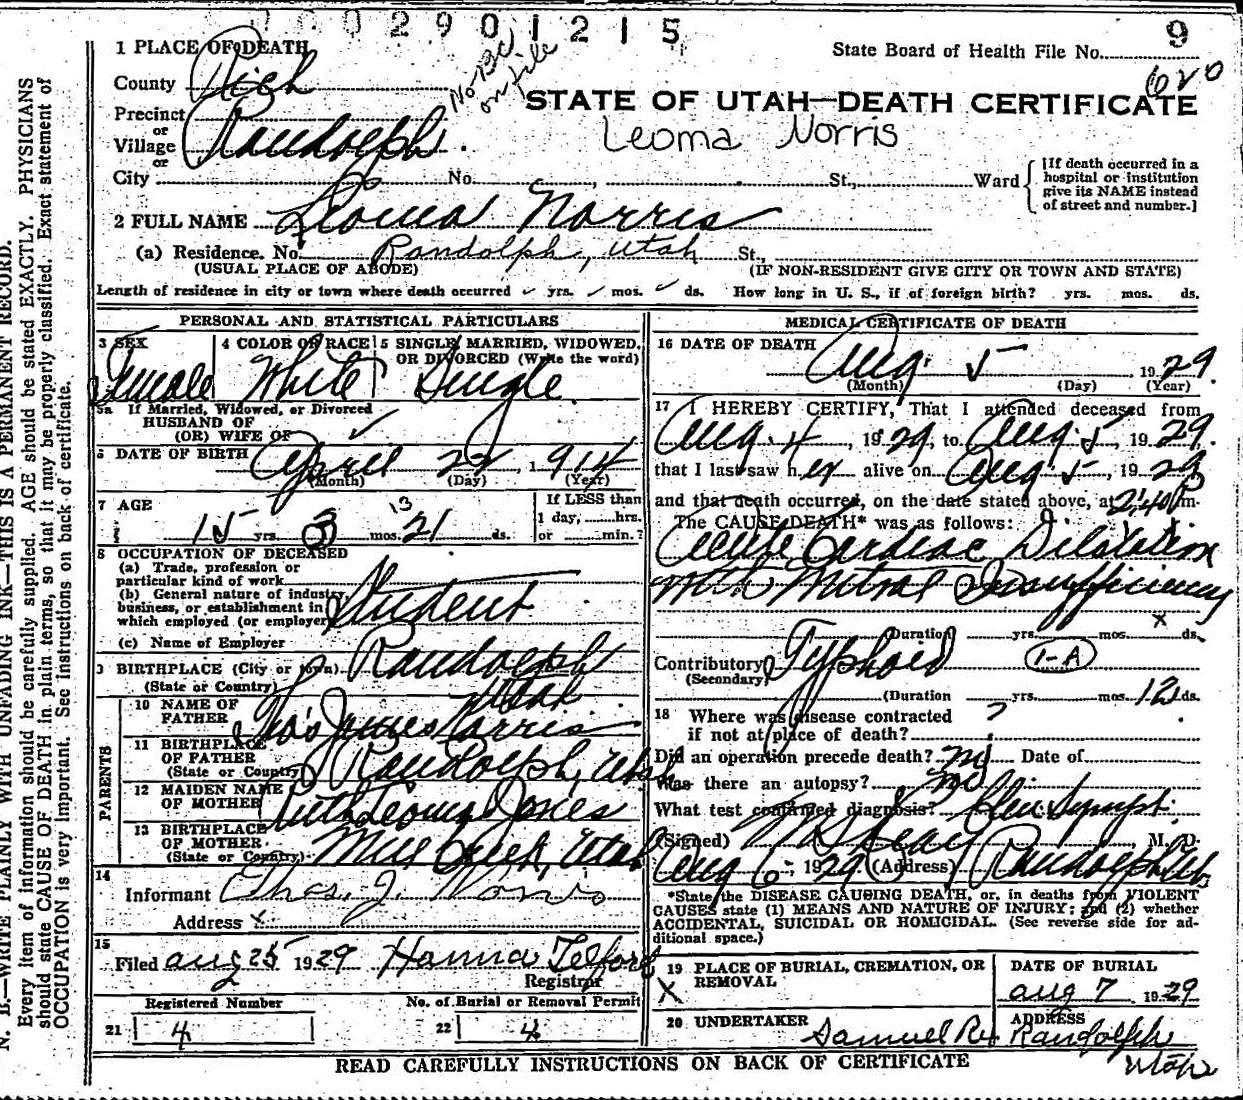 0002901215
9
1 PLACE OF DEATH
State Board of Health File No.
620
County Rich
No BC
on file
STATE OF UTAH—DEATH CERTIFICATE
Precinct
or
Village Randolph
Leoma Norris
or
City No. St., Ward
[If death occurred in a
hospital or institution
give its NAME instead
of street and number.]
2 FULL NAME Leoma Norris
(a) Residence. No. Randolph, Utah St.,
(USUAL PLACE OF ABODE) (IF NON-RESIDENT GIVE CITY OR TOWN AND STATE)
Length of residence in city or town where death occurred yrs. mos. ds. How long in U. S., if of foreign birth? yrs. mos. ds.
PERSONAL AND STATISTICAL PARTICULARS
3 SEX 4 COLOR OR RACE 5 SINGLE, MARRIED, WIDOWED,
OR DIVORCED (Write the word)
Female White Single
5a If Married, Widowed, or Divorced
HUSBAND OF
(OR) WIFE OF
6 DATE OF BIRTH April 22, 1914
(Month) (Day) (Year)
7 AGE
If LESS than
1 day, hrs.
or min.?
13
15 yrs. 3 mos. 21 ds.
8 OCCUPATION OF DECEASED
(a) Trade, profession or
particular kind of work
(b) General nature of industry,
business, or establishment in
which employed (or employer)
Student
(c) Name of Employer
9 BIRTHPLACE (City or town) Randolph
(State or Country) Utah
PARENTS
10 NAME OF
FATHER
James Norris
11 BIRTHPLACE
OF FATHER
(State or Country) Randolph, Utah
12 MAIDEN NAME
OF MOTHER Ruth Leoma Jones
13 BIRTHPLACE
OF MOTHER
(State or Country) Mill Creek, Utah
14
Informant Thos. J. Norris
Address
15
Filed Aug 25 1929 Hanna Telford
2
Registrar
Registered Number No. of Burial or Removal Permit
21 4 22 4
MEDICAL CERTIFICATE OF DEATH
16 DATE OF DEATH
Aug. 5 1929
(Month) (Day) (Year)
17 I HEREBY CERTIFY, That I attended deceased from
Aug. 4, 1929, to Aug. 5, 1929.
that I last saw her alive on Aug. 5, 1929
and that death occurred, on the date stated above, at 2:40 P m.
The CAUSE DEATH* was as follows:
Acute Cardiac Dilatation
with Mitral Insufficiency
(Duration yrs. mos. ds.
Contributory Typhoid 1-A
(Secondary)
(Duration yrs. mos. 12 ds.
18 Where was disease contracted
if not at place of death? ?
Did an operation precede death? no Date of
Was there an autopsy? no
What test confirmed diagnosis? Sympt.
(Signed) M. D.
Aug 6, 1929 (Address) Randolph
*State the DISEASE CAUSING DEATH, or, in deaths from VIOLENT
CAUSES state (1) MEANS AND NATURE OF INJURY; and (2) whether
ACCIDENTAL, SUICIDAL OR HOMICIDAL. (See reverse side for ad-
ditional space.)
19 PLACE OF BURIAL, CREMATION, OR
REMOVAL
X
DATE OF BURIAL
Aug 7 1929
20 UNDERTAKER
Samuel Rex
ADDRESS
Randolph
Utah
READ CAREFULLY INSTRUCTIONS ON BACK OF CERTIFICATE
N. B.—WRITE PLAINLY WITH UNFADING INK—THIS IS A PERMANENT RECORD.
Every item of information should be carefully supplied. AGE should be stated EXACTLY. PHYSICIANS
should state CAUSE OF DEATH in plain terms, so that it may be properly classified. Exact statement of
OCCUPATION is very important. See instructions on back of certificate.